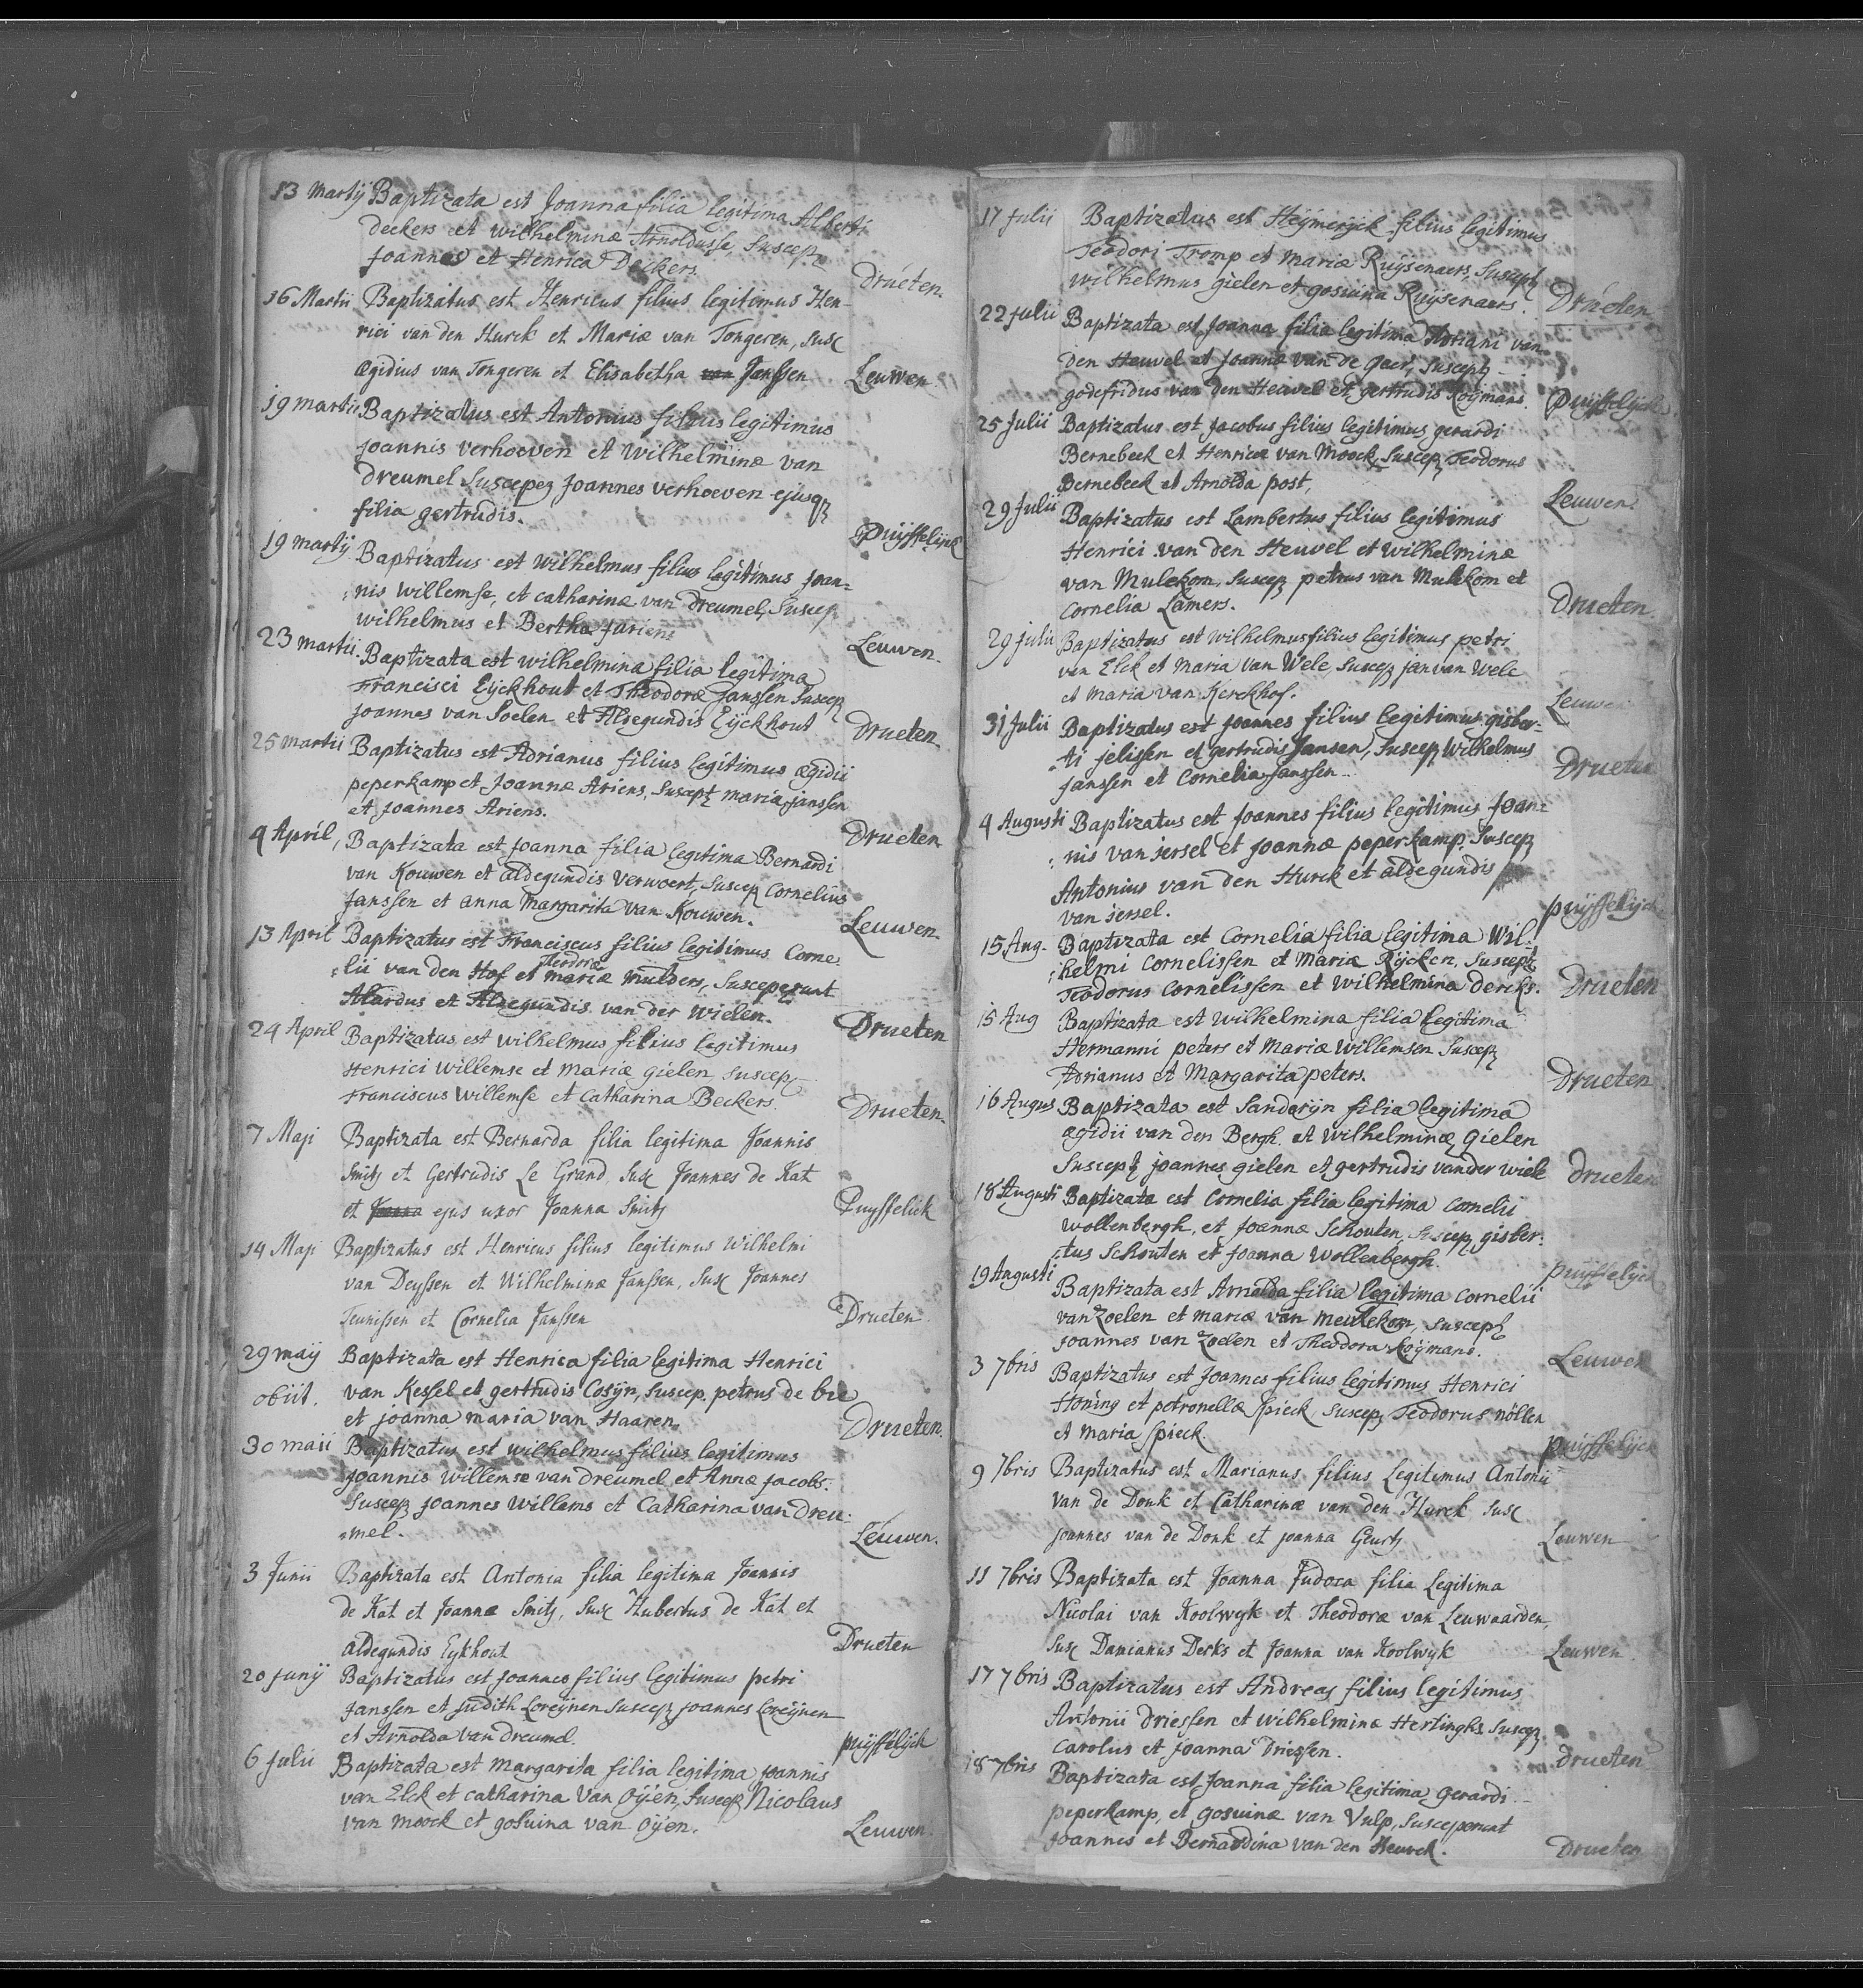 13 Martij Baptizata est Joanna filia legitima Alberti
deckers et wilhelminæ Arnoldusse, Suscep
Joannes et Henrica Deckers. Drueten.
16 Martii Baptizatus est Henricus filius legitimus Hen-
rici van den Hurck et Mariæ van Tongeren, Susc
Ægidius van Tongeren et Elisabetha van Janssen Leuwen
19 martii Baptizatus est Antonius filius legitimus
joannis verhoeven et wilhelminæ van
dreumel Suscepez Joannes verhoeven ejusqz
filia gertrudis. Puijffelijck
19 martij Baptizatus est wilhelmus filius legitimus joan=
=nis willemse, et catharinæ van dreumel, Suscep
wilhelmus et Bertha juriens Leuwen.
23 martii. Baptizata est wilhelmina filia legitima
Francisci Eijckhout et Theodoræ Janssen Suscep
joannes van Soelen et Aldegundis Eijckhout Drueten
25 martii Baptizatus est Adrianus filius legitimus ægidii
peperkamp et Joannæ Ariens, Suscept maria janssen
et joannes Ariens. Drueten
4 April, Baptizata est joanna filia legitima Bernardi
van Kouwen et aldegundis verwoert, Suscep Cornelius
Janssen et anna Margarita van Kouwen. Leuwen.
13 April Baptizatus est Franciscus filius legitimus Corne
Theodoræ
=lii van den Hof et mariæ mulders, Susceperunt
Alardus et Aldegundis van der wielen. Drueten
24 April Baptizatus est wilhelmus filius legitimus
Henrici willemse et mariæ gielen suscep
Franciscus willemse et catharina Beckers. Drueten.
7 Maji Baptizata est Bernarda filia legitima Joannis
Smitz et Gertrudis Le Grand, Susc Joannes de Kat
et ejus uxor Joanna Smitz Puyffelick
14 Maji Baptizatus est Henricus filius legitimus Wilhelmi
van Deyssen et Wilhelminæ Janssen, Susc Joannes
Teunissen et Cornelia Janssen Drueten
29 maij Baptizata est Henrica filia legitima Henrici
obiit. van Kessel et gertrudis Cosijn, suscep. petrus de bie
et joanna maria van Haaren. Drueten.
30 maii Baptizatus est wilhelmus filius legitimus
joannis willemse van dreumel et Annæ jacobs.
Suscep joannes willems et Catharina van dreu-
=mel. Leuwen.
3 Junii Baptizata est Antonia filia legitima Joannis
de Kat et Joannæ Smitz, Susc Hubertus de Kat et
aldegundis Eykhout Drueten
20 junij Baptizatus est joannes filius legitimus petri
janssen et judith Loreijnen Suscep joannes Loreijnen
et Arnolda van dreumel. puijffelijck
6 Julii Baptizata est margarita filia legitima joannis
van Elck et catharina van oijen, Suscep Nicolaus
van moock et gosuina van oijen. Leuwen.
17 Julii Baptizatus est Heijmerijck filius legitimus
Teodori Tromp et mariæ Ruijsenaers, Suscept
wilhelmus gielen et gosuina Ruijsenaers. Drueten
22 julii Baptizata est joanna filia legitima Adriani van
den Heuvel et joannæ van de gaer, Suscept
godefridus van den Heuvel et gertrudis Roijmans. Puijffelijck
25 Julii Baptizatus est jacobus filius legitimus gerardi
Bernebeek et Henricæ van Moock, Suscep Teodorus
Bernebeek et Arnolda post, Leuwen.
29 Julii Baptizatus est Lambertus filius legitimus
Henrici van den Heuvel et wilhelminæ
van Mulekom, Suscep petrus van Mulekom et
Cornelia Lamers. Drueten.
29 julii Baptizatus est wilhelmus filius legitimus petri
van Elck et maria van Wele, suscep jan van Wele
et maria van Kerckhof. Leuwen
31 Julii Baptizatus est joannes filius legitimus gisber-
=ti jelissen et gertrudis Jansen, Suscep Wilhelmus
janssen et Cornelia janssen. Drueten
4 Augusti Baptizatus est joannes filius legitimus joan=
=nis van iersel et joannæ peperkamp, Suscep
Antonius van den Hurck et aldegundis
van iersel. puijffelijck
15 Aug. Baptizata est Cornelia filia legitima Wil=
=helmi Cornelissen et Mariæ Rijcken, Suscept
Teodorus Cornelissen et wilhelmina deriks. Drueten
15 Aug Baptizata est wilhelmina filia legitima
Hermanni peters et Mariæ willemsen Suscep
Adrianus et Margarita peters. Drueten
16 Augus Baptizata est Sanderijn filia legitima
ægidii van den Bergh. et wilhelminæ gielen
Suscept joannes gielen et gertrudis vander wiele Drueten
18 Augusti Baptizata est Cornelia filia legitima Cornelii
wollenbergh, et joannæ Schouten, Suscep gisber=
=tus Schouten et joanna Wollenbergh. puijffelijck
19 Augusti Baptizata est Arnolda filia legitima Cornelii
van Zoelen et mariæ van meulekom, Suscept
joannes van Zoelen et Theodora Roijmans. Leuwen
3 7bris Baptizatus est joannes filius legitimus Henrici
Honing et petronellæ Spieck Suscep Teodorus nollen
et maria Spieck. puijffelijck
9 7bris Baptizatus est Marianus filius Legitimus Antonii
van de Donk et Catharinæ van den Hurck Susc
joannes van de Donk et joanna Geurtz Leuwen
11 7bris Baptizata est Joanna Judoca filia Legitima
Nicolai van Koolwyk et Theodoræ van Leuwaarden,
Susc Damianus Derks et Joanna van Koolwyk Leuwen
17 7bris Baptizatus est Andreas filius legitimus
Antonii driessen et wilhelminæ Hertinghs Suscep
Carolus et joanna Driessen. Drueten
18 7bris Baptizata est Joanna filia legitima Gerardi
peperkamp, et gosuinæ van Vulp, Susceperunt
joannes et Bernardina van den Heuvel. Drueten